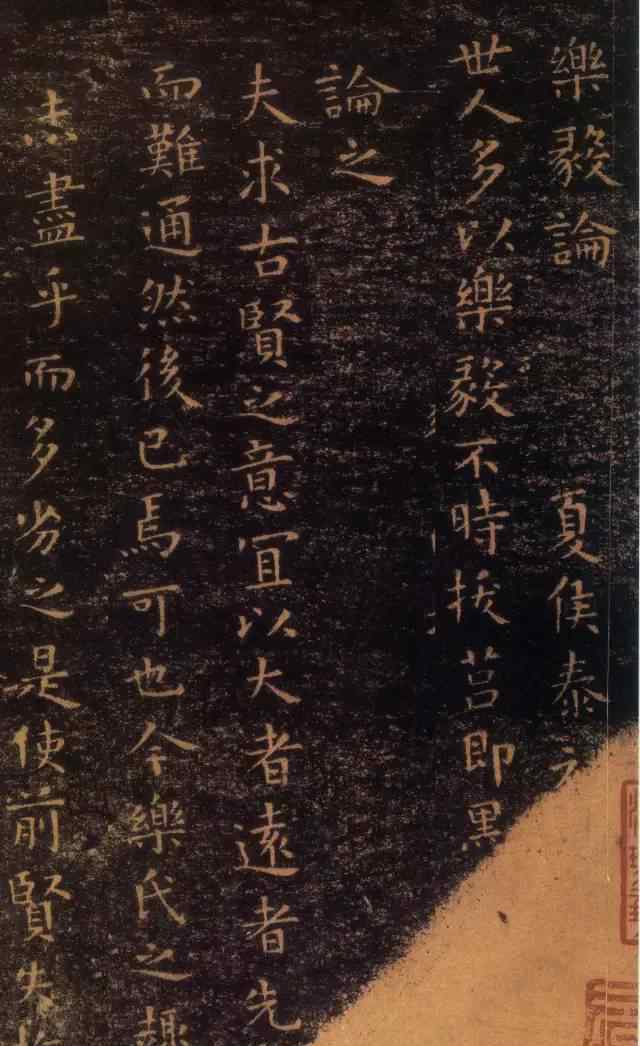 樂毅論 夏侯泰
世人多以樂毅不時拔莒即墨
論之
夫求古賢之意宜以大者遠者先
而難通然後已焉可也今樂氏之趣
未盡乎而多劣之是使前賢失指